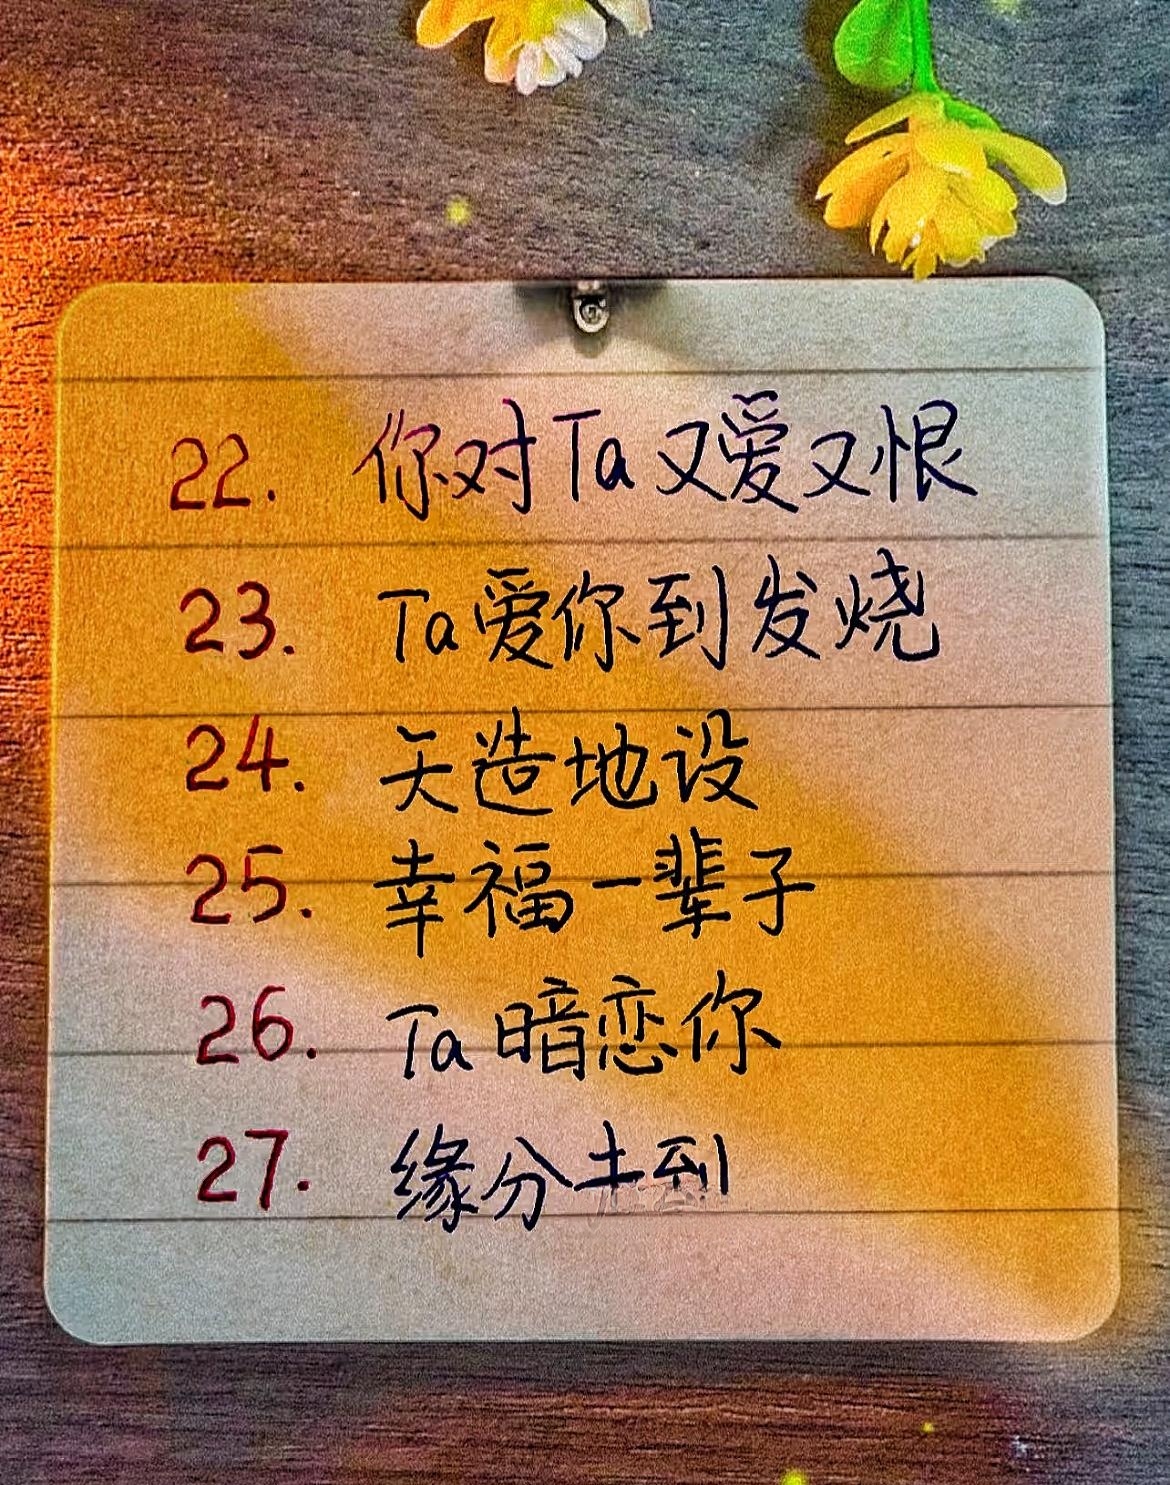 22. 你对Ta又爱又恨
23. Ta爱你到发烧
24. 天造地设
25. 幸福一辈子
26. Ta暗恋你
27. 缘分未到